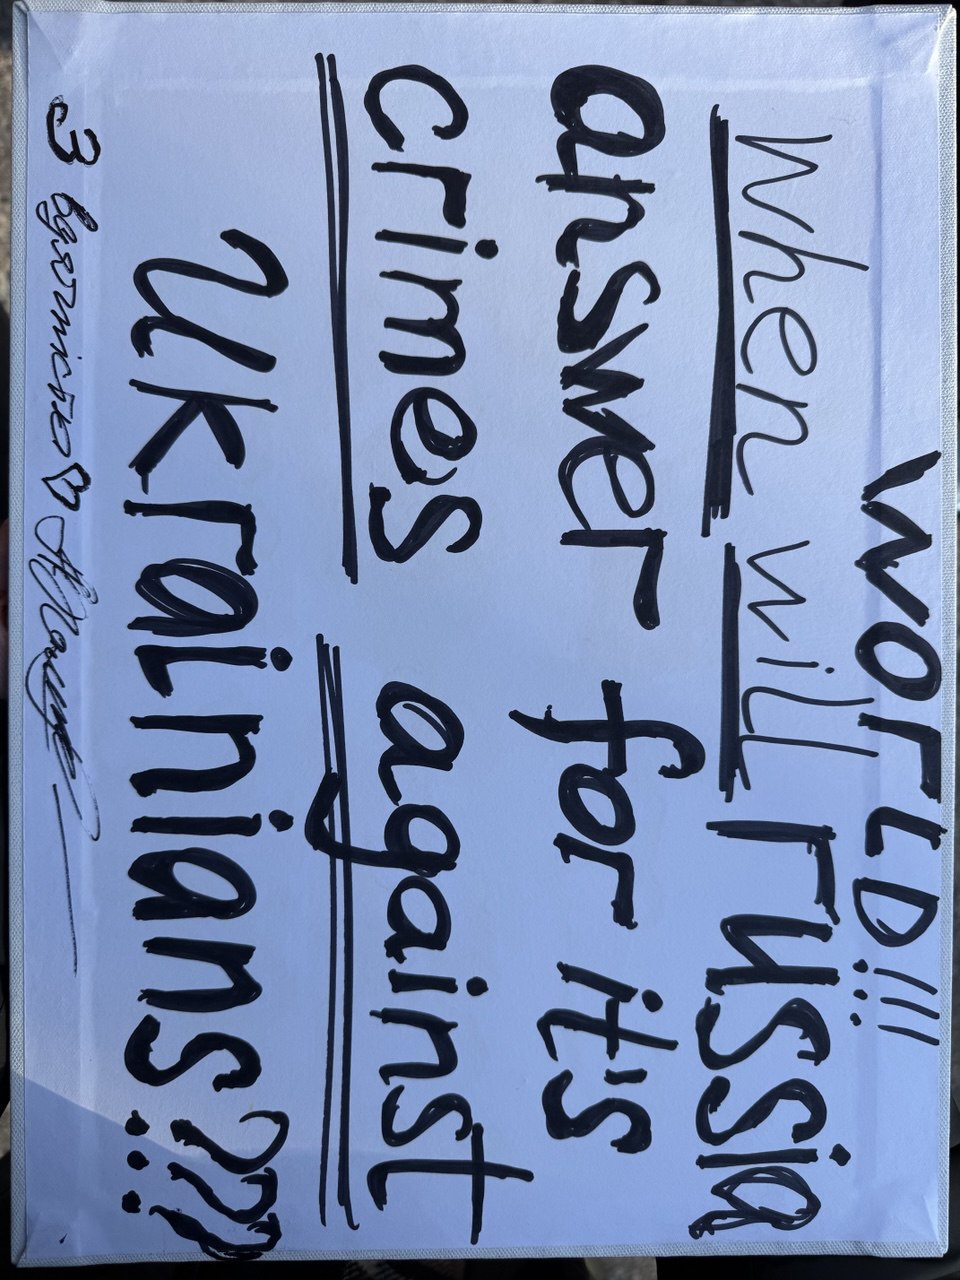 WORLD!!!
When will russia
answer for it's
crimes against
Ukrainians???
З вдячністю